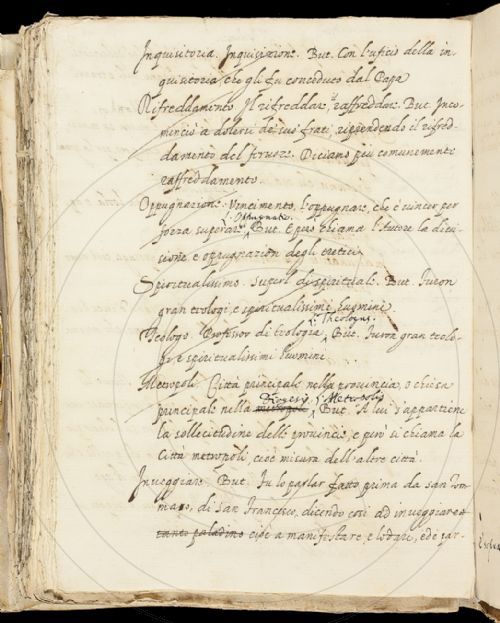 Inquisitoria. Inquisizione. But. Con l'uficio della in-
quisitoria, che gli fu conceduto dal Papa
Rifreddamento. Il rifreddare, il raffreddare. But. Inco-
minciò a dolersi de suoi frati, riprendendo il rifred-
damento del fervore. Diciamo più comunemente
raffreddamento.
Oppugnazione. Vincimento. l'oppugnare, che è vincer per
forza, superare. L. Oppugnatio. But. E però chiama l'Autore la dicu-
sione, e oppugnazion degli eretici
Spiritualissimo. Superl. di spirituale. But. Furon
gran teologi, e spiritualissimi Huomini
Teologo. Professor di teologia. L. Theologus. But. Furon gran teolo-
gi e spiritualissimi Huomini
Metropoli. Città principale nella provincia, o chiesa
principale nella metropoli Diogesi L. Metropolis But. A lui s'appartiene
la sollecitudine delle provincie, e però si chiama la
Città metropoli, cioè misura dell'altre città.
Inveggiare. But. Fu lo parlar fatto prima da san Tom-
maso, di San Francesco, dicendo così ad inveggiare
tanto paladino cioè a manifestare, e lodare, ed è par-